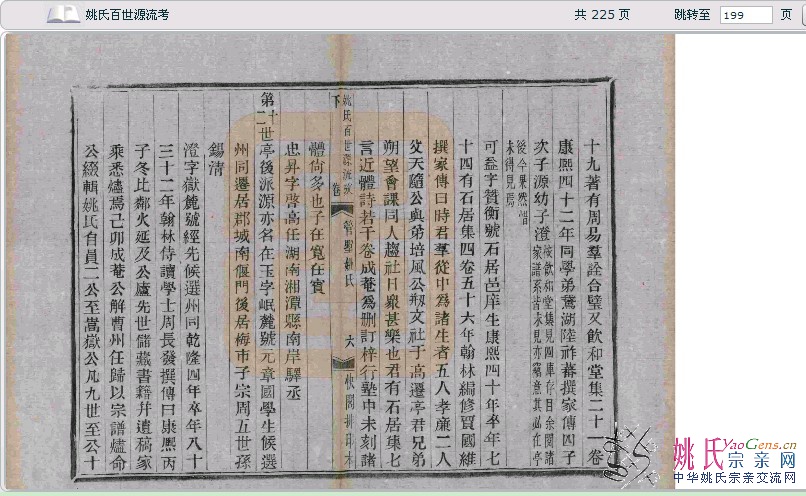 姚氏百世源流考
共 225 页
跳转至 199 页
十九著有周易羣詮合璧又飲和堂集二十一卷
康熙四十二年同學弟鴛湖陸祚蕃撰家傳四子
次子源幼子澄
後今果然惜
未得見焉
可益字贊衡號石居邑庠生康熙四十年卒年七
十四有石居集四卷五十六年翰林編修賈國維
撰家傳曰時君羣從中爲諸生者五人孝廉二人
父天隨公與弟培風公剏文社于高遷亭君兄弟
朔望會課同人趨社日衆甚樂也君有石居集七
言近體詩若干卷成菴爲刪訂梓行塾中未刻諸
體尙多也子在寬在賓
忠昇字啓高任湖南湘潭縣南岸驛丞
第二十世
亭後派源亦名在玉字岷麓號元章國學生候選
州同遷居郡城南偃門後居梅市子宗周五世孫
錫清
澄字嶽麓號經先候選州同乾隆四年卒年八十
三十二年翰林侍讀學士周長發撰傳曰康熙丙
子冬比鄰火延及公廬先世儲藏書籍幷遺稿家
乘悉燼焉己卯成菴公解曹州任歸以宗譜燼命
公綴輯姚氏自員二公至嵩嶽公凡九世至公十
姚氏百世源流考
卷下
六
姚氏宗亲网
YaoGens.cn
中华姚氏宗亲交流网